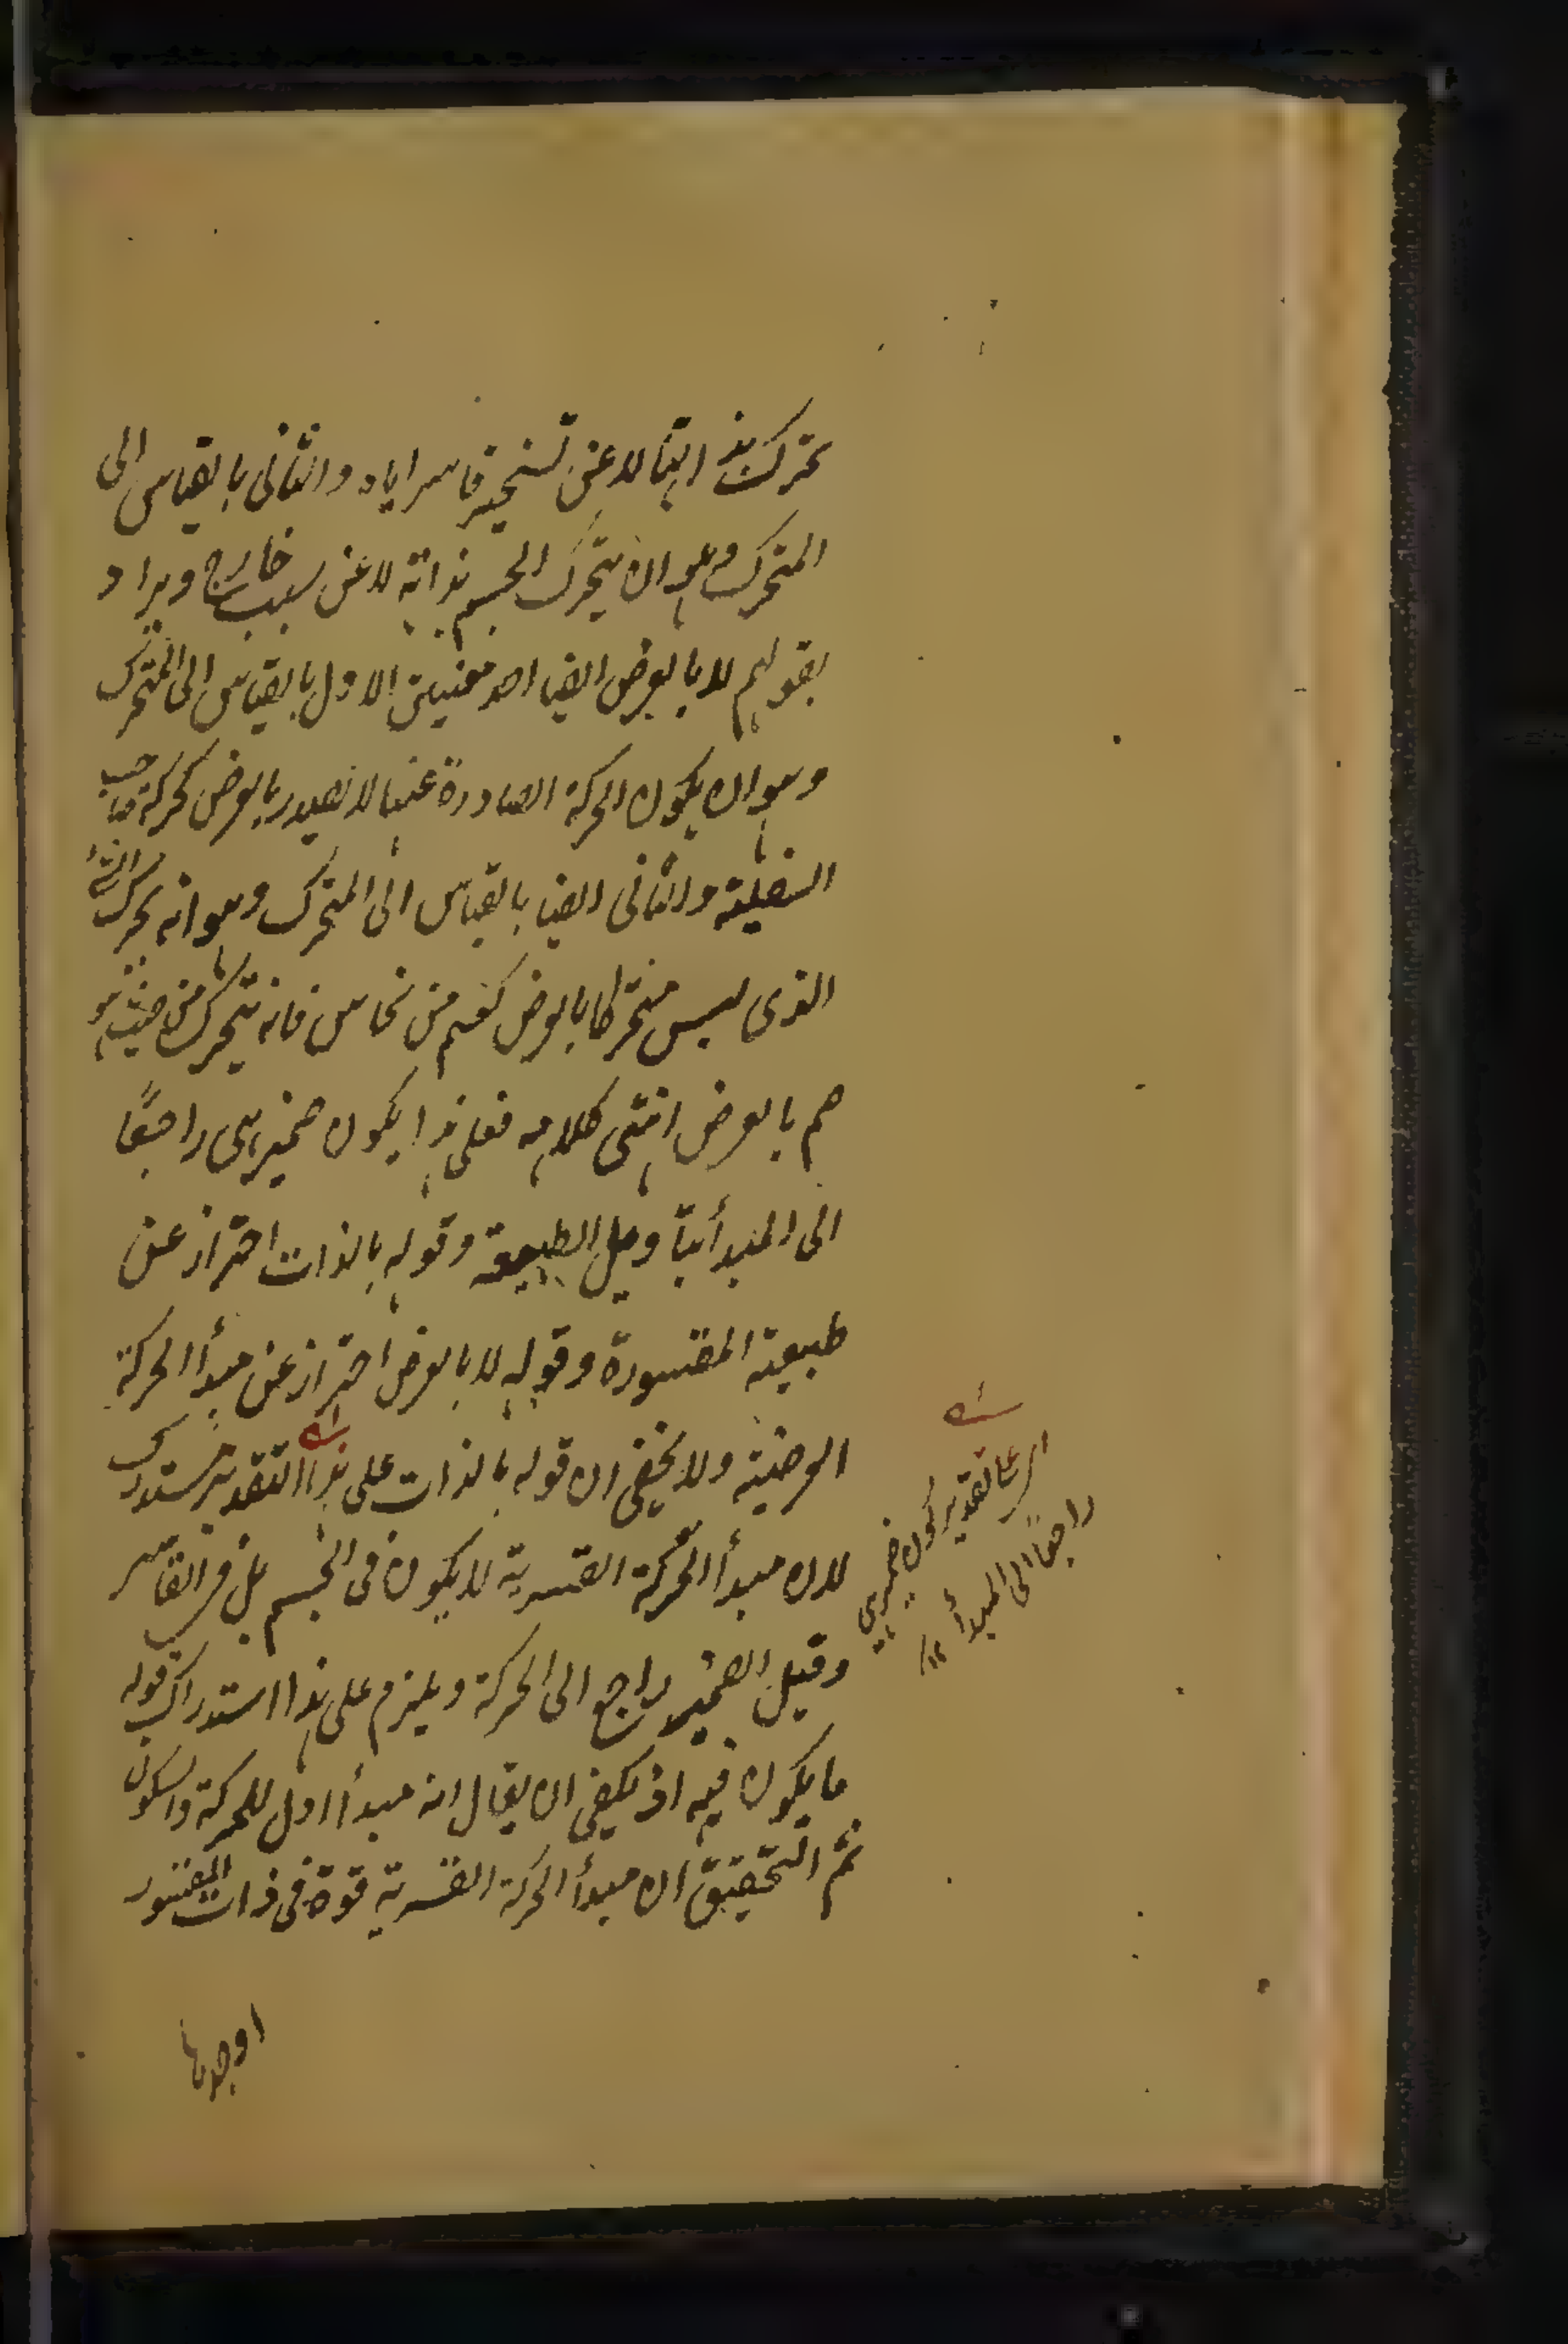 تحرك بذاتها لا عن تسخير قاسر اياه والثاني بالقياس الى
المتحرك وهو ان يتحرك الجسم بذاته لا عن سبب خارج ويراد
بقولهم لا بالعرض ايضا احد معنيين الاول بالقياس الى المتحرك
وهو ان يكون الحركة الصادرة عنها لا تصدر بالعرض كحركة صاحب
السفينة والثاني ايضا بالقياس الى المتحرك وهو انه تحرك الشئ
الذى ليس متحركا بالعرض كصنم من نحاس فانه يتحرك من حيث هو
صنم بالعرض انتهى كلامه فعلى هذا يكون ضمير هى راجعًا
الى المبدأ بتاويل الطبيعة وقوله بالذات احتراز عن
طبيعة المقسورة وقوله لا بالعرض احتراز عن مبدأ الحركة
العرضية ولا يخفى ان قوله بالذات على هذا التقدير مستدرك
لان مبدأ الحركة القسرية لا يكون فى الجسم بل فى القاسر
وقيل الضمير راجع الى الحركة ويلزم على هذا استدراك قوله
ما يكون فيه اذ يكفى ان يقال انه مبدأ اول للحركة والسكون
ثم التحقيق ان مبدأ الحركة القسرية قوة فى ذات المقسور
اوجدها
اى على تقدير كون ضمير هى
راجعًا الى المبدأ ١٢